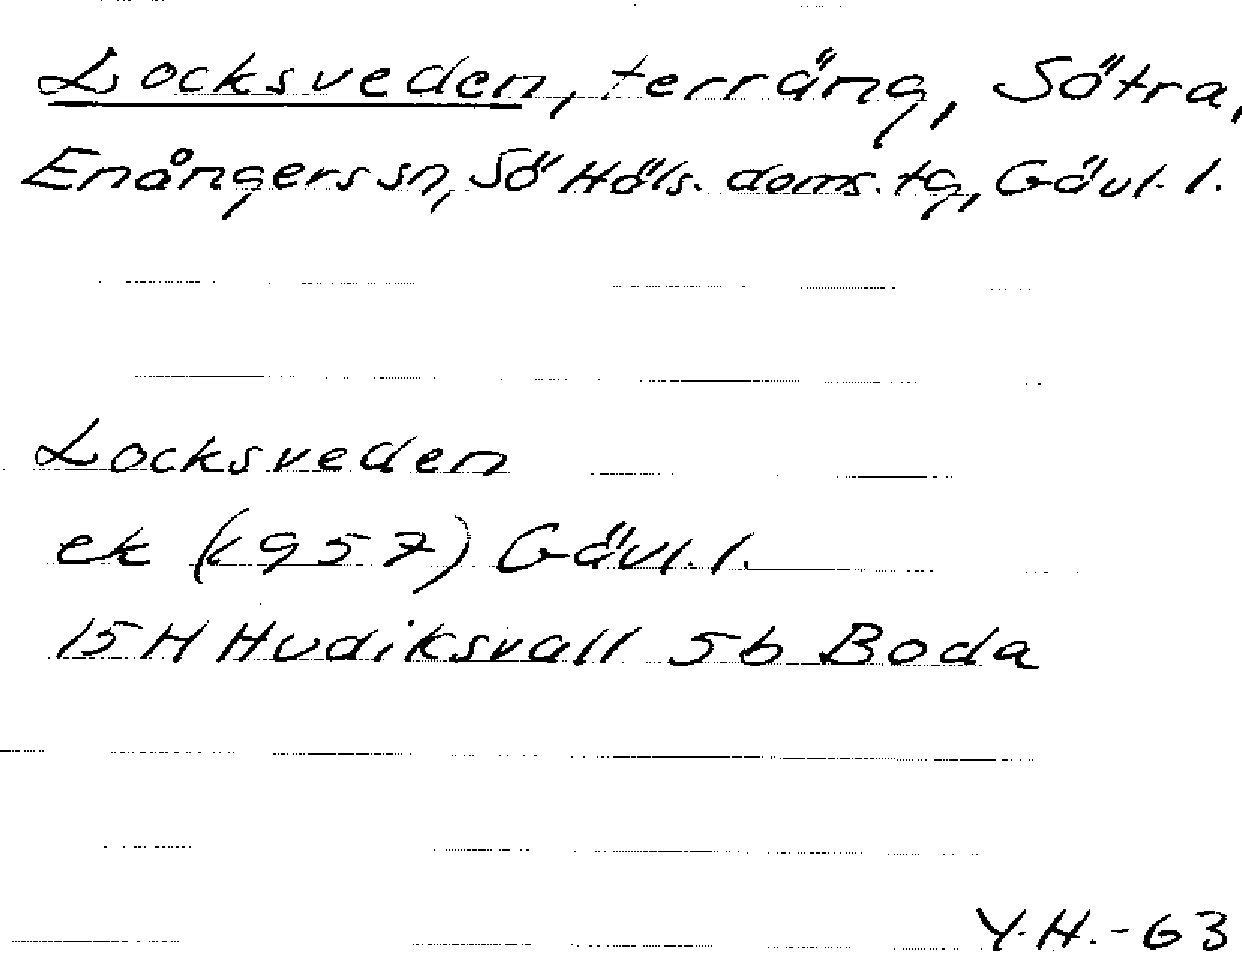 Locksveden, terräng, Sötra,
Enångers sn, Sö Häls. doms. tg, Gävl. l.
Locksveden
ek (1957) Gävl. l.
15H Hudiksvall 5b Boda
Y.H.-63